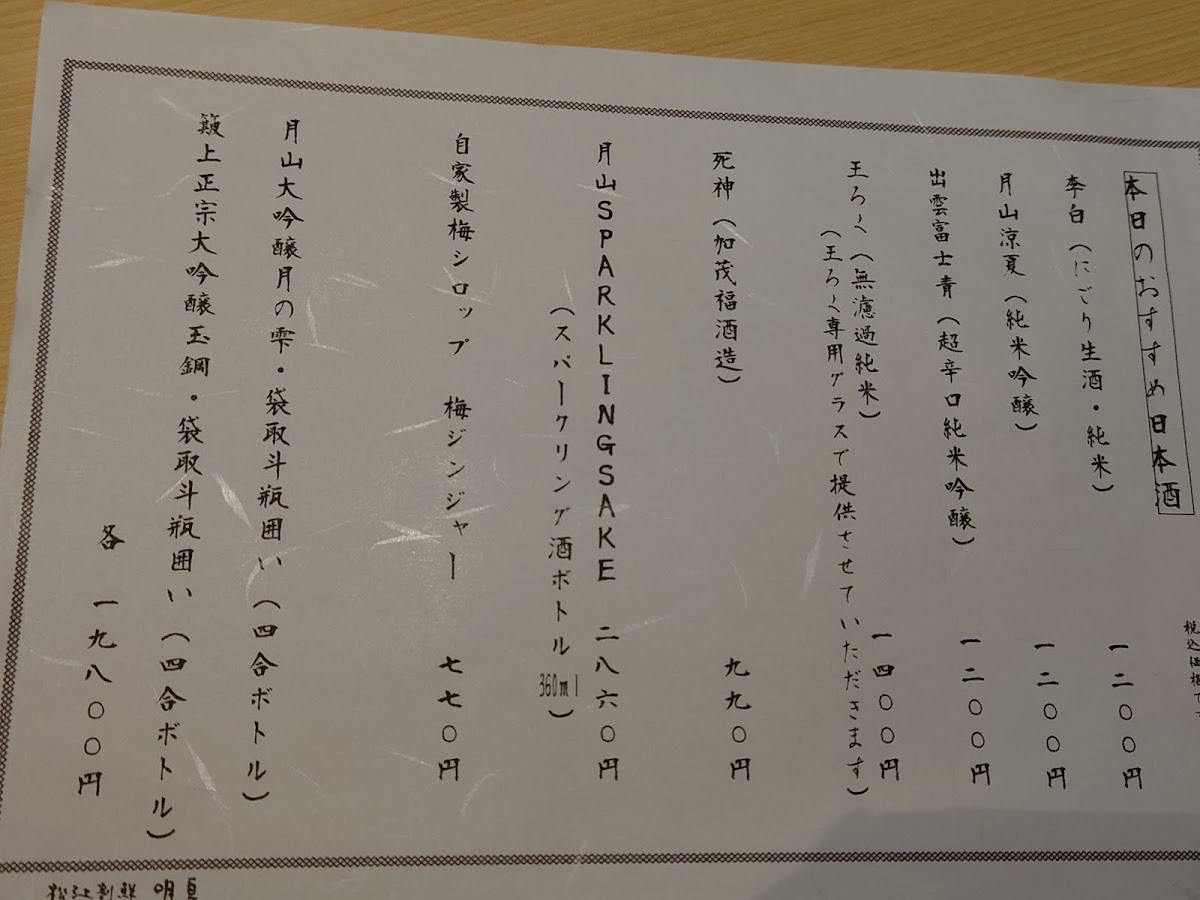 本日のおすすめ日本酒
李白（にごり生酒・純米） 一二〇〇円
月山涼夏（純米吟醸） 一二〇〇円
出雲富士青（超辛口純米吟醸） 一二〇〇円
王ろく（無濾過純米） 一四〇〇円
（王ろく専用グラスで提供させていただきます）
死神（加茂福酒造） 九九〇円
月山SPARKLINGSAKE 二八六〇円
（スパークリング酒ボトル360ml）
自家製梅シロップ 梅ジンジャー 七七〇円
月山大吟醸月の雫・袋取斗瓶囲い（四合ボトル）
簸上正宗大吟醸玉鋼・袋取斗瓶囲い（四合ボトル）
各 一九八〇〇円
税込価格
松江割鮮